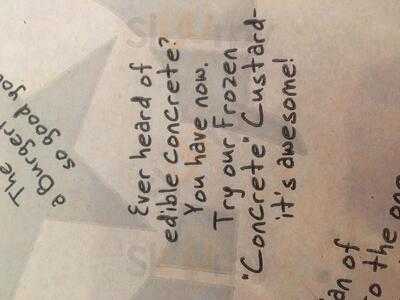 The
a burger!
so good you
Ever heard of
edible concrete?
You have now.
Try our Frozen
"Concrete" Custard-
it's awesome!
an of
to the one